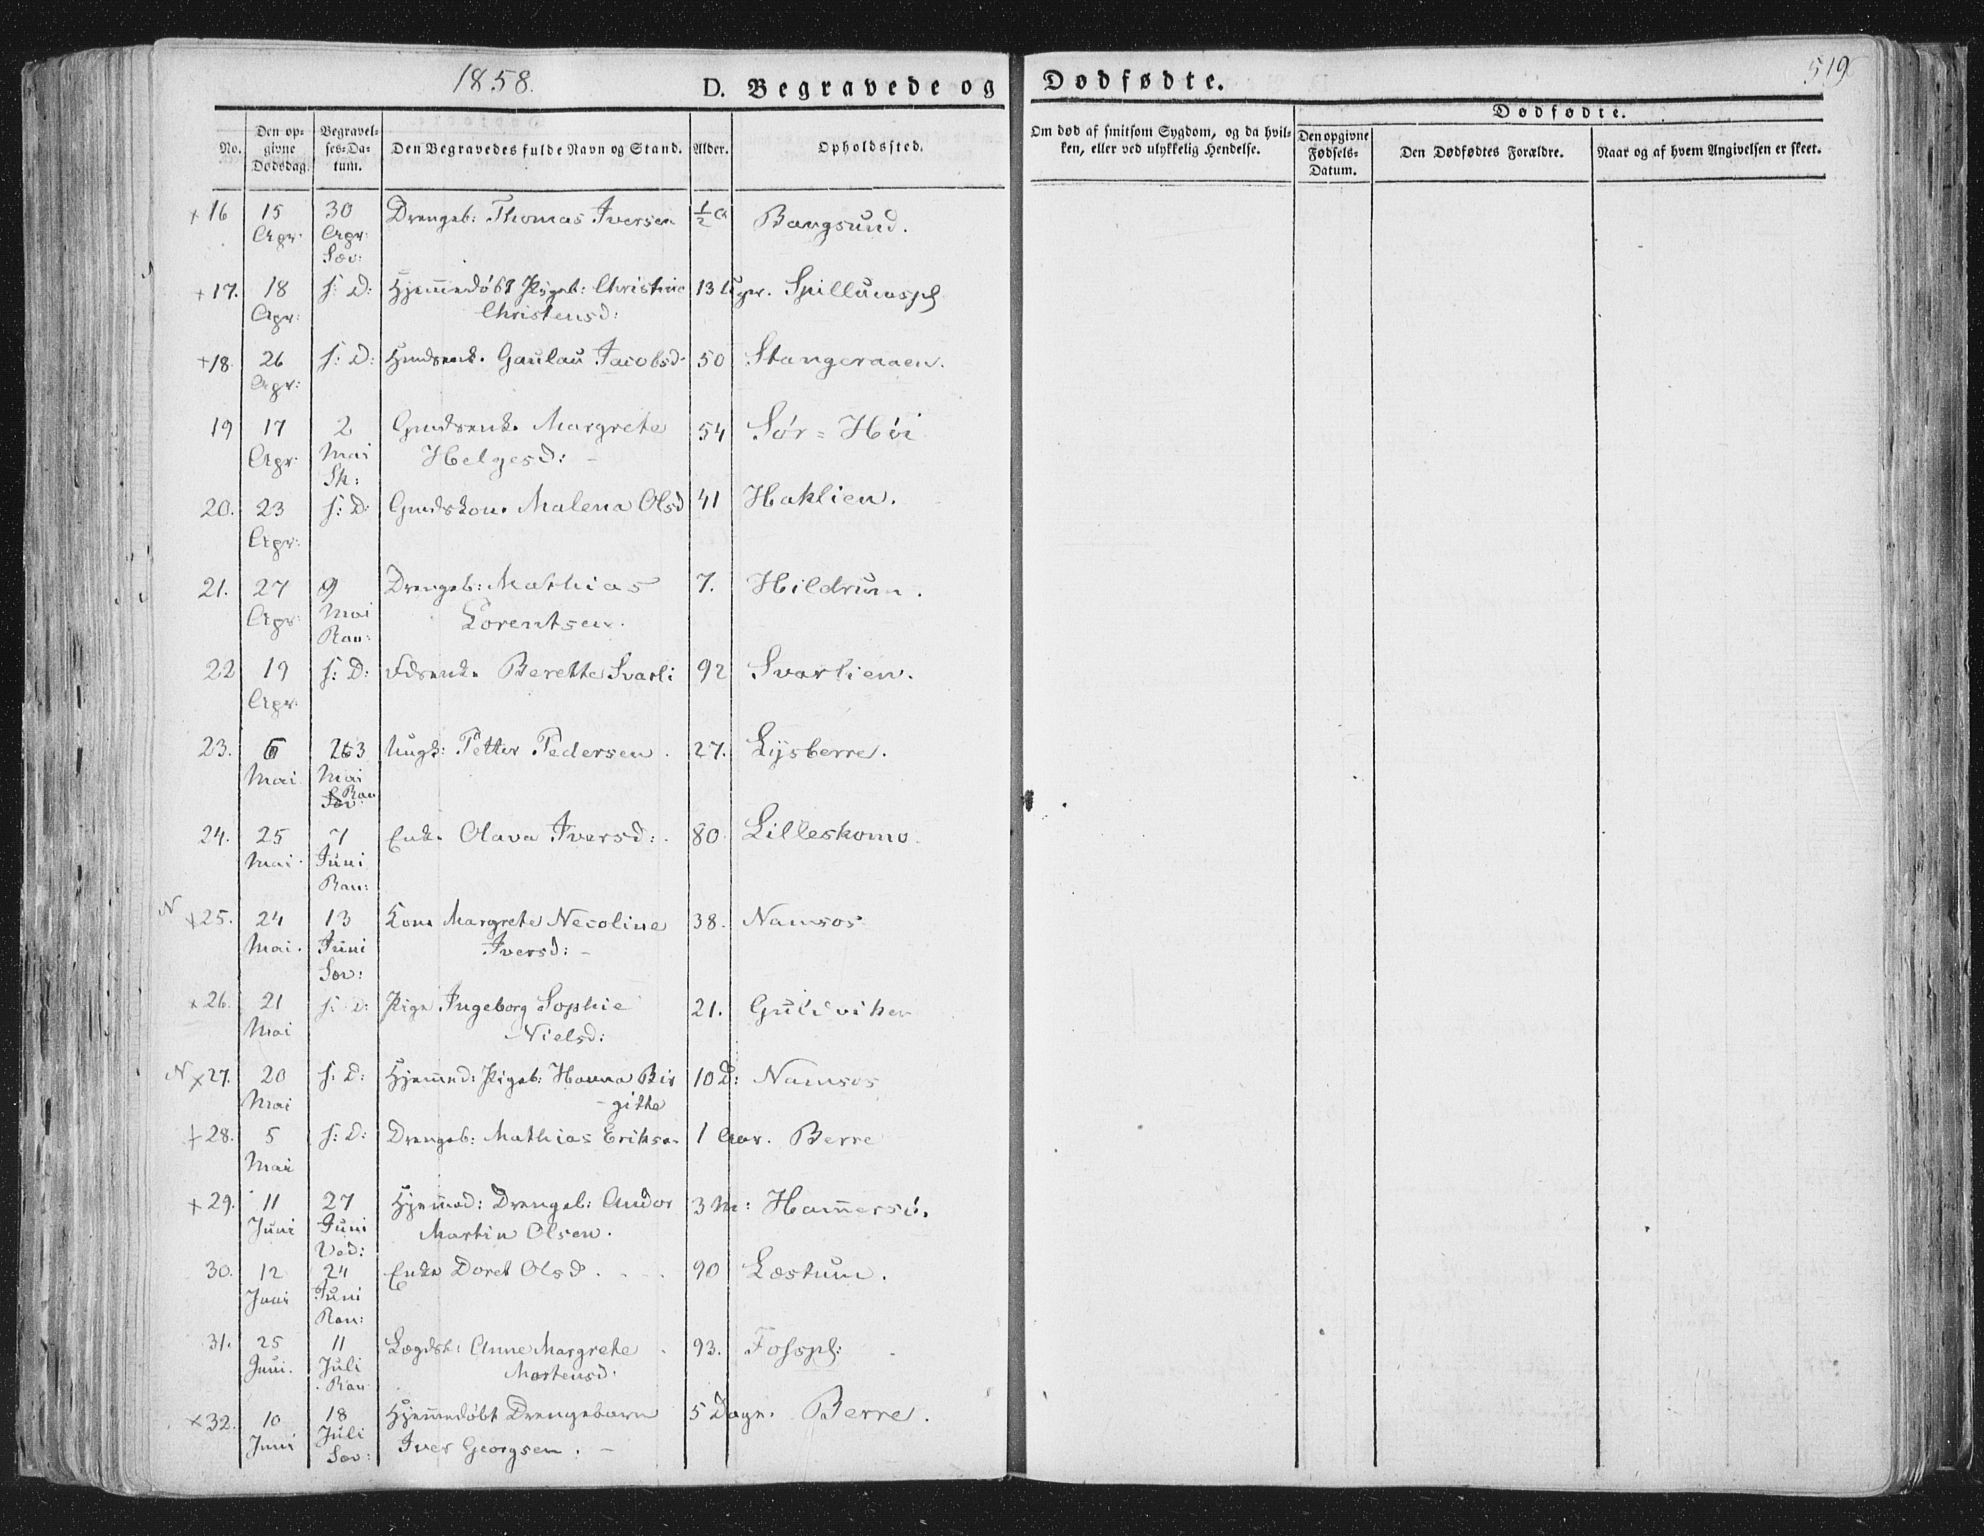 1858.
D. Begravede og Dødfødte.
519
No.
Den op-
givne
Dødsdag.
Begravel-
ses-Da-
tum.
Den Begravedes fulde Navn og Stand.
Alder.
Opholdssted.
Om død af smitsom Sygdom, og da hvil-
ken, eller ved ulykkelig Hendelse.
Dødfødte.
Den opgivne
Fødsels-
Datum.
Den Dødfødtes Forældre.
Naar og af hvem Angivelsen er skeet.
+16 15 30 Drengeb: Thomas Iversen ½ a Bangsund.
Apr: Apr:
Sæv:
+17. 18 s: D: Hjemmedøbt Pigeb: Christine 13 Uger. Spillumspl
Apr: Christensd:
+18. 26 s: D: Gaulau Jacobsd. 50 Stangeraaen.
Apr:
19 17 2 Margrete 54 Sør=Høi
Apr Mai Helgesd: -
Sk:
20. 23 s: D: Gmdskone Malena Olsd 41 Haklien.
Apr:
21. 27 9 Drengeb: Mathias 7. Hildrum.
Apr Mai Lorentsen.
Ran:
22 19 s: D: Berette Svarli 92 Svarlien.
Apr.
23. 6 23 Ungk: Petter Pedersen. 27. Lysberre.
Mai Mai
Ran
24. 25 7 Enke Olava Iversd: 80 Lilleskomo.
Mai. Juni
Ran:
N +25. 24 13 Kone Margrete Necoline 38. Namsos
Mai. Juni Iversd: -
Sæv:
×26. 21 s: D: Pige Ingeborg Sophie 21. Guldviken
Mai Nielsd:
N ×27. 20 s: D: Hjemmed: Pigeb: Hanna Bir 10 D: Namsos
Mai -gitte
+28. 5 s: D: Drengeb: Mathias Eriksen 1 Aar. Berre
Mai
+29. 11 27 Hjemmed: Drengeb: Andor 3 M: Hammersø.
Juni Juni Martin Olsen.
Ved:
30. 12 24 Enke Doret Olsd. 90 Læstum.
Juni Juni
Ran:
31. 25 11 Lægdsk: Anne Margrete 93. Fosspl:
Juni. Juli Mortensd.
Ran
×32. 10 18 Hjemmedøbt Drengebarn 5 Dage. Berre.
Juni Juli Iver Georgsen. -
Sæv: